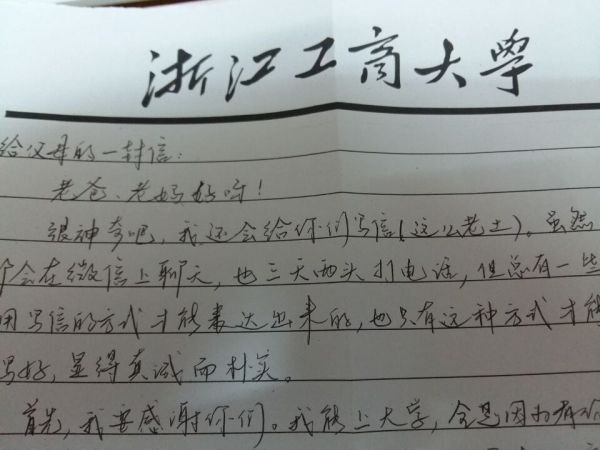 浙江工商大学
给父母的一封信:
老爸、老妈好呀!
很神奇吧,我还会给你们写信(这么老土)。虽然
会在微信上聊天,也三天两头打电话,但总有一些
用写信的方式才能表达出来的,也只有这种方式才能
写好,显得真诚而朴实。
首先,我要感谢你们。我能上大学,全是因为有你